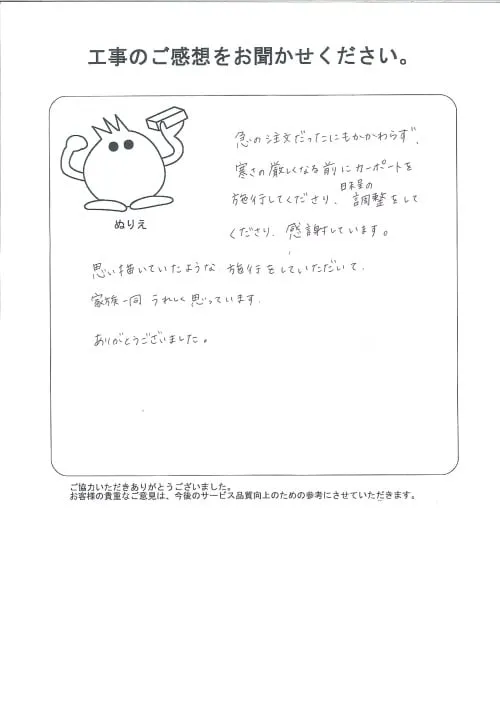 工事のご感想をお聞かせください。
ぬりえ
急の注文だったにもかかわらず、
寒さの厳しくなる前にカーポートを
施行してくださり、日程の調整をして
くださり、感謝しています。
思い描いていたような施行をしていただいて、
家族一同うれしく思っています。
ありがとうございました。
ご協力いただきありがとうございました。
お客様の貴重なご意見は、今後のサービス品質向上のための参考にさせていただきます。